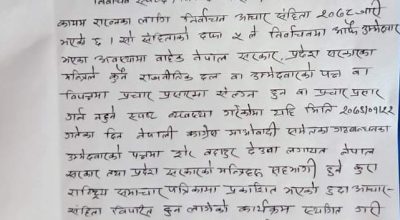 कायम राख्नका लागि निर्वाचन आचार संहिता २०७८ जारी
भएको छ । सो संहिताको दफा ५ ले निर्वाचनमा आफैं उम्मेदवार
भएका अवस्थामा बाहेक नेपाल सरकार, प्रदेश सरकारका
मन्त्रिले कुनै राजनीतिक दल वा उम्मेदवारको पक्ष वा
विपक्षमा प्रचार प्रसारमा संलग्न हुन वा प्रचार प्रसार
गर्न नहुने स्पष्ट व्यवस्था गरेकोमा यहि मिति
गतेका दिन नेपाली काँग्रेस माओवादी समेतका गठबन्धनका
उम्मेदवारको पक्षमा शेर बहादुर देउवा लगायत नेपाल
सरकार तथा प्रदेश सरकारका मन्त्रिहरू सहभागी हुने कुरा
राष्ट्रिय समाचार पत्रिकामा प्रकाशित भएको हुदा आचार-
संहिता विपरित हुन लागेको कार्यक्रम स्थगित गरी